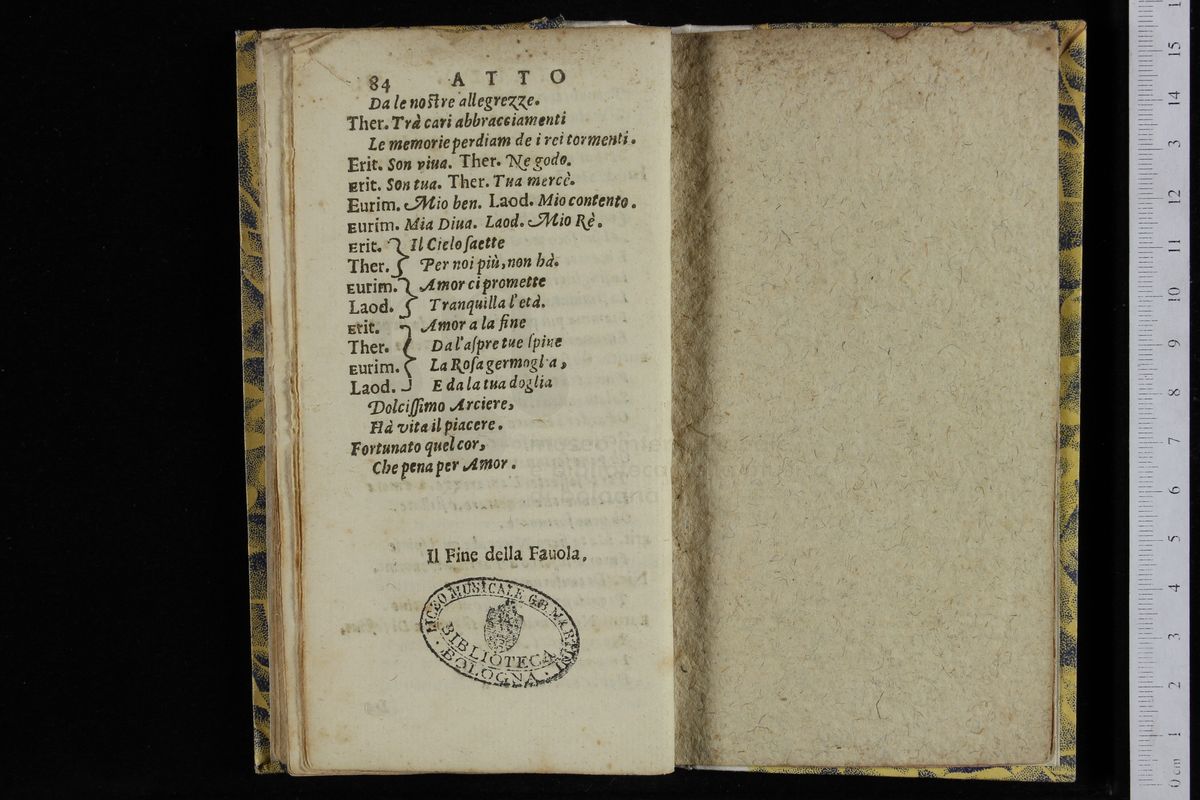 84 ATTO
Da le noſtre allegrezze.
Ther. Trà cari abbracciamenti
Le memorie perdiam de i rei tormenti.
Erit. Son viua. Ther. Ne godo.
Erit. Son tua. Ther. Tua mercè.
Eurim. Mio ben. Laod. Mio contento.
Eurim. Mia Diua. Laod. Mio Rè.
Erit. Il Cielo ſaette
Ther. Per noi più, non hà.
Eurim. Amor ci promette
Laod. Tranquilla l'età.
Erit. Amor a la fine
Ther. Da l'aſpre tue ſpine
Eurim. La Roſa germoglia,
Laod. E da la tua doglia
Dolciſſimo Arciere,
Hà vita il piacere.
Fortunato quel cor,
Che pena per Amor.
Il Fine della Fauola.
LICEO MUSICALE G.B. MARTINI
BIBLIOTECA
BOLOGNA
15
14
13
12
11
10
9
8
7
6
5
4
3
2
1
0 cm